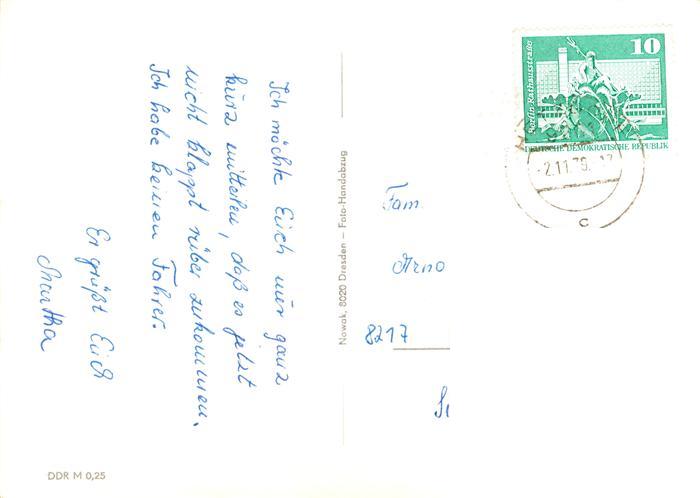 Ich möchte Euch nur ganz
kurz mitteilen, daß es jetzt
nicht klappt rüber zukommen.
Ich habe keinen Fahrer.
Er grüßt Euch
Martha
DDR M 0,25
Nowak, 8020 Dresden – Foto-Handabzug
10
Berlin, Rathausstraße
DEUTSCHE DEMOKRATISCHE REPUBLIK
-2.11.79
c
Fam.
Arno
8217